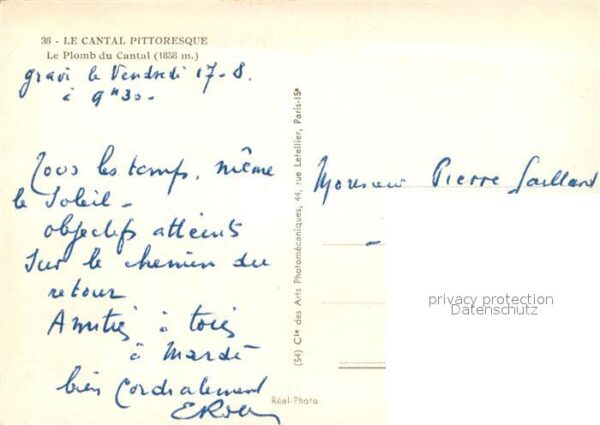 36 - LE CANTAL PITTORESQUE
Le Plomb du Cantal (1858 m.)
gravi le Vendredi 17-8.
à 9h30-
Tous les temps, même
le Soleil -
objectifs atteints
Sur le chemin du
retour
Amitiés à tous
à Mardi
bien Cordialement
(54) Cie des Arts Photomécaniques, 44, rue Letellier, Paris-15e
Réal-Photo
Monsieur Pierre Gaillard
privacy protection
Datenschutz